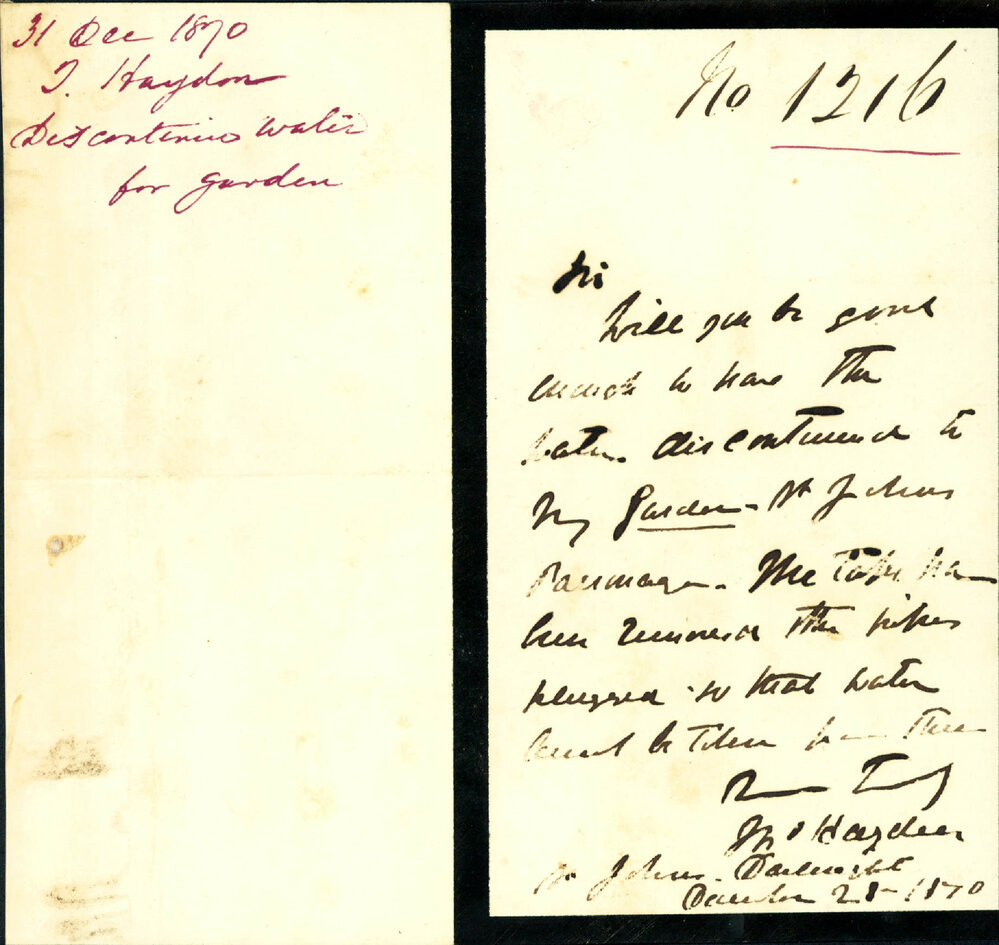 31 Dec 1870
T. Haydon
Discontinue water
for garden
No 1216
Sir
Will you be good
enough to have the
water discontinued to
my Garden - St Johns
Parsonage. The Taps have
been removed the pipes
plugged so that water
cannot be taken from them
Yours Truly
Haydon
St Johns Parsonage
December 28 - 1870